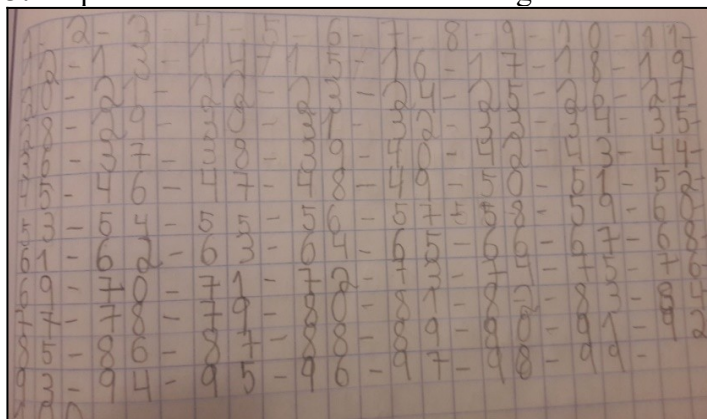 1- 2- 3- 4- 5- 6- 7- 8- 9- 10- 11-
12-13-14-15-16-17-18-19
20-21-22-23-24-25-26-27
28-29-30-31-32-33-34-35-
36-37-38-39-40-42-43-44-
45-46-47-48-49-50-51-52
53-54-55-56-57-58-59-60
61-62-63-64-65-66-67-68
69-70-71-72-73-74-75-76
77-78-79-80-81-82-83-84
85-86-87-88-89-90-91-92
93-94-95-96-97-98-99-
100